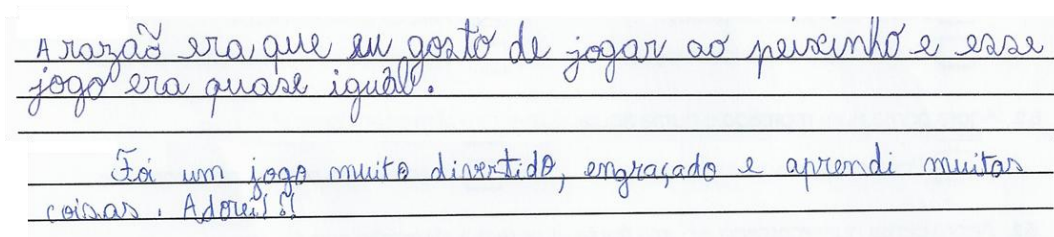 A razão era que eu gosto de jogar ao peixinho e esse
jogo era quase igual.
Foi um jogo muito divertido, engraçado e aprendi muitas
coisas. Adorei!!